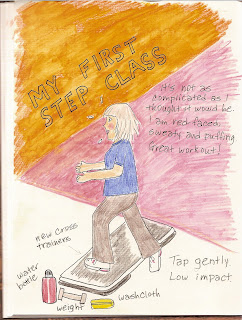 MY FIRST
STEP CLASS
It's not as
complicated as I
thought it would be.
I am red faced,
sweaty and puffing
Great workout!
new cross
trainers
water
bottle
weight
washcloth
Tap gently
Low impact